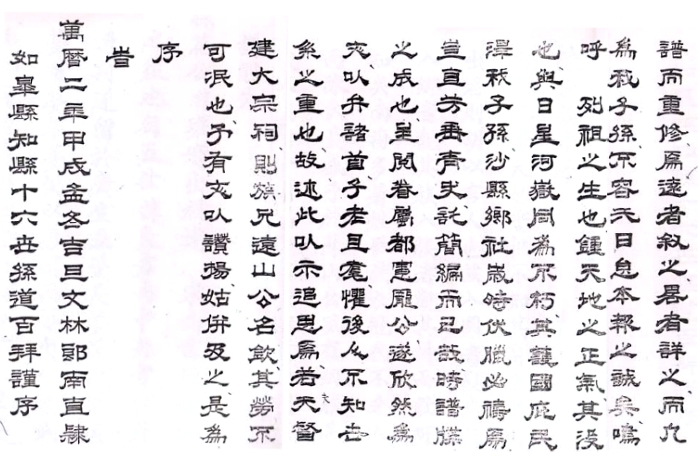 譜而重修焉遠者敘之畧者詳之而凡
為我子孫不容一日怠本報之誠矣嗚
呼列祖之生也鍾天地之正氣其没
也與日星河嶽同為不朽其護國庇民
澤我子孫沙縣鄉社歲時伏臘必禱焉
豈直芳垂青史託簡編而已哉時譜牒
之成也呈閱眷屬都憲龐公遂欣然為
文以弁諸首予老且耄懼後人不知世
系之重也故述此以示追思焉若夫督
建大宗祠則族兄遠山公名欽其勞不
可泯也予有文以讚揚姑併及之是為
序
旹
萬曆二年甲戌孟冬吉旦文林郎南直隸
如皋縣知縣十六世孫道百拜謹序